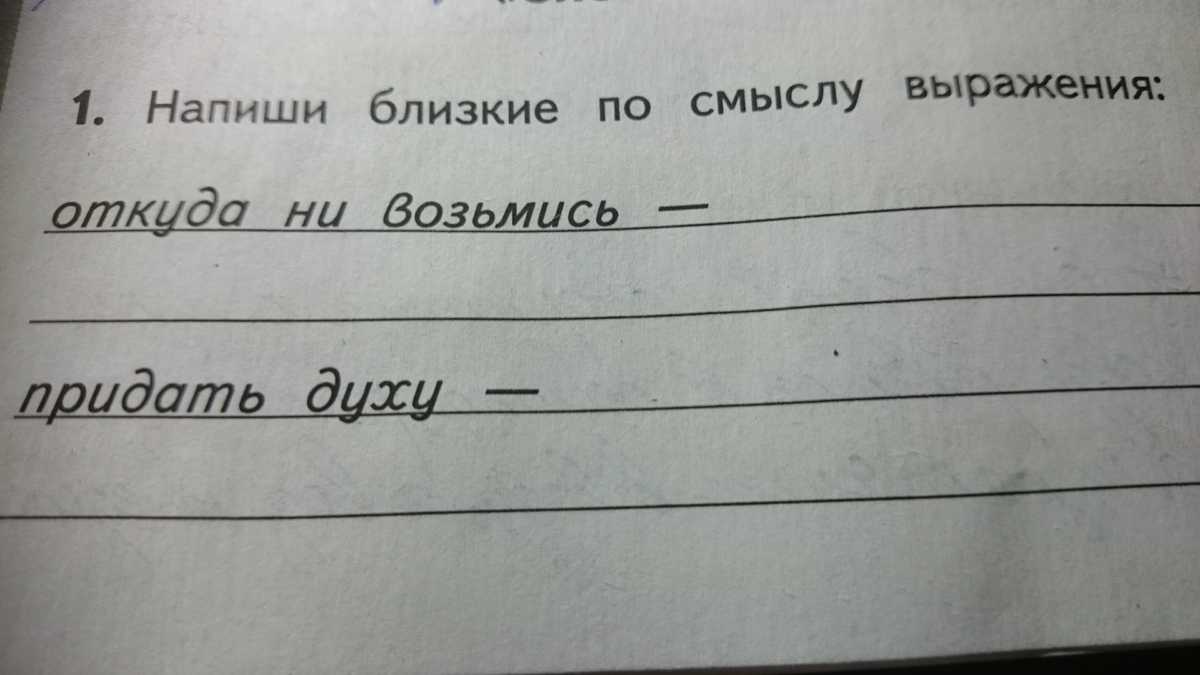 1. Напиши близкие по смыслу выражения:
откуда ни возьмись —
придать духу —